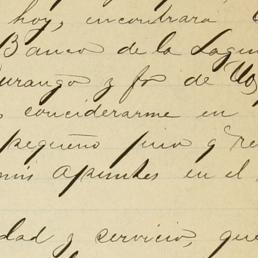 hoy, encontrara
Banco de la Lagun
Durango y fo de
considerarme en
pequeño pico q' re
mis apuntes en el
dad y servicio, que